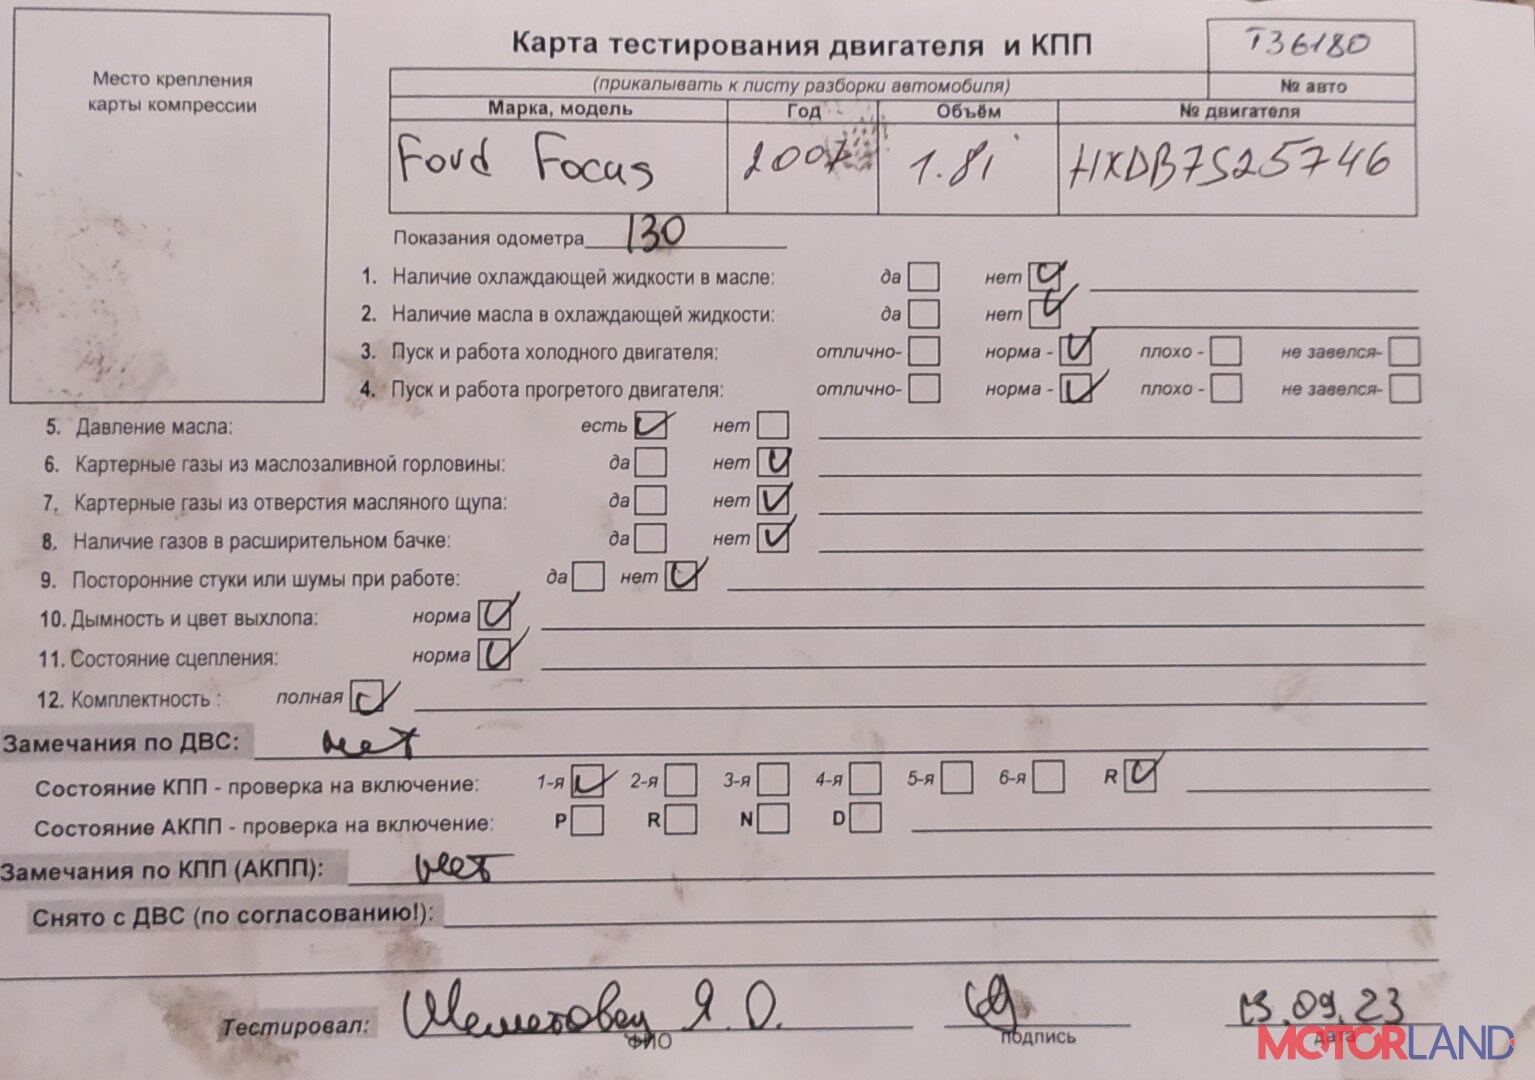 Место крепления
карты компрессии
Карта тестирования двигателя и КПП
T36180
(прикалывать к листу разборки автомобиля)
№ авто
Марка, модель Год Объём № двигателя
Ford Focus 2007 1.8i HXDB7S25746
Показания одометра 130
1. Наличие охлаждающей жидкости в масле: да нет
2. Наличие масла в охлаждающей жидкости: да нет
3. Пуск и работа холодного двигателя: отлично- норма - плохо - не завелся-
4. Пуск и работа прогретого двигателя: отлично- норма - плохо - не завелся-
5. Давление масла: есть нет
6. Картерные газы из маслозаливной горловины: да нет
7. Картерные газы из отверстия масляного щупа: да нет
8. Наличие газов в расширительном бачке: да нет
9. Посторонние стуки или шумы при работе: да нет
10. Дымность и цвет выхлопа: норма
11. Состояние сцепления: норма
12. Комплектность : полная
Замечания по ДВС: нет
Состояние КПП - проверка на включение: 1-я 2-я 3-я 4-я 5-я 6-я R
Состояние АКПП - проверка на включение: P R N D
Замечания по КПП (АКПП): нет
Снято с ДВС (по согласованию!):
Тестировал: Я. О. 13.09.23
ФИО подпись дата
MOTORLAND